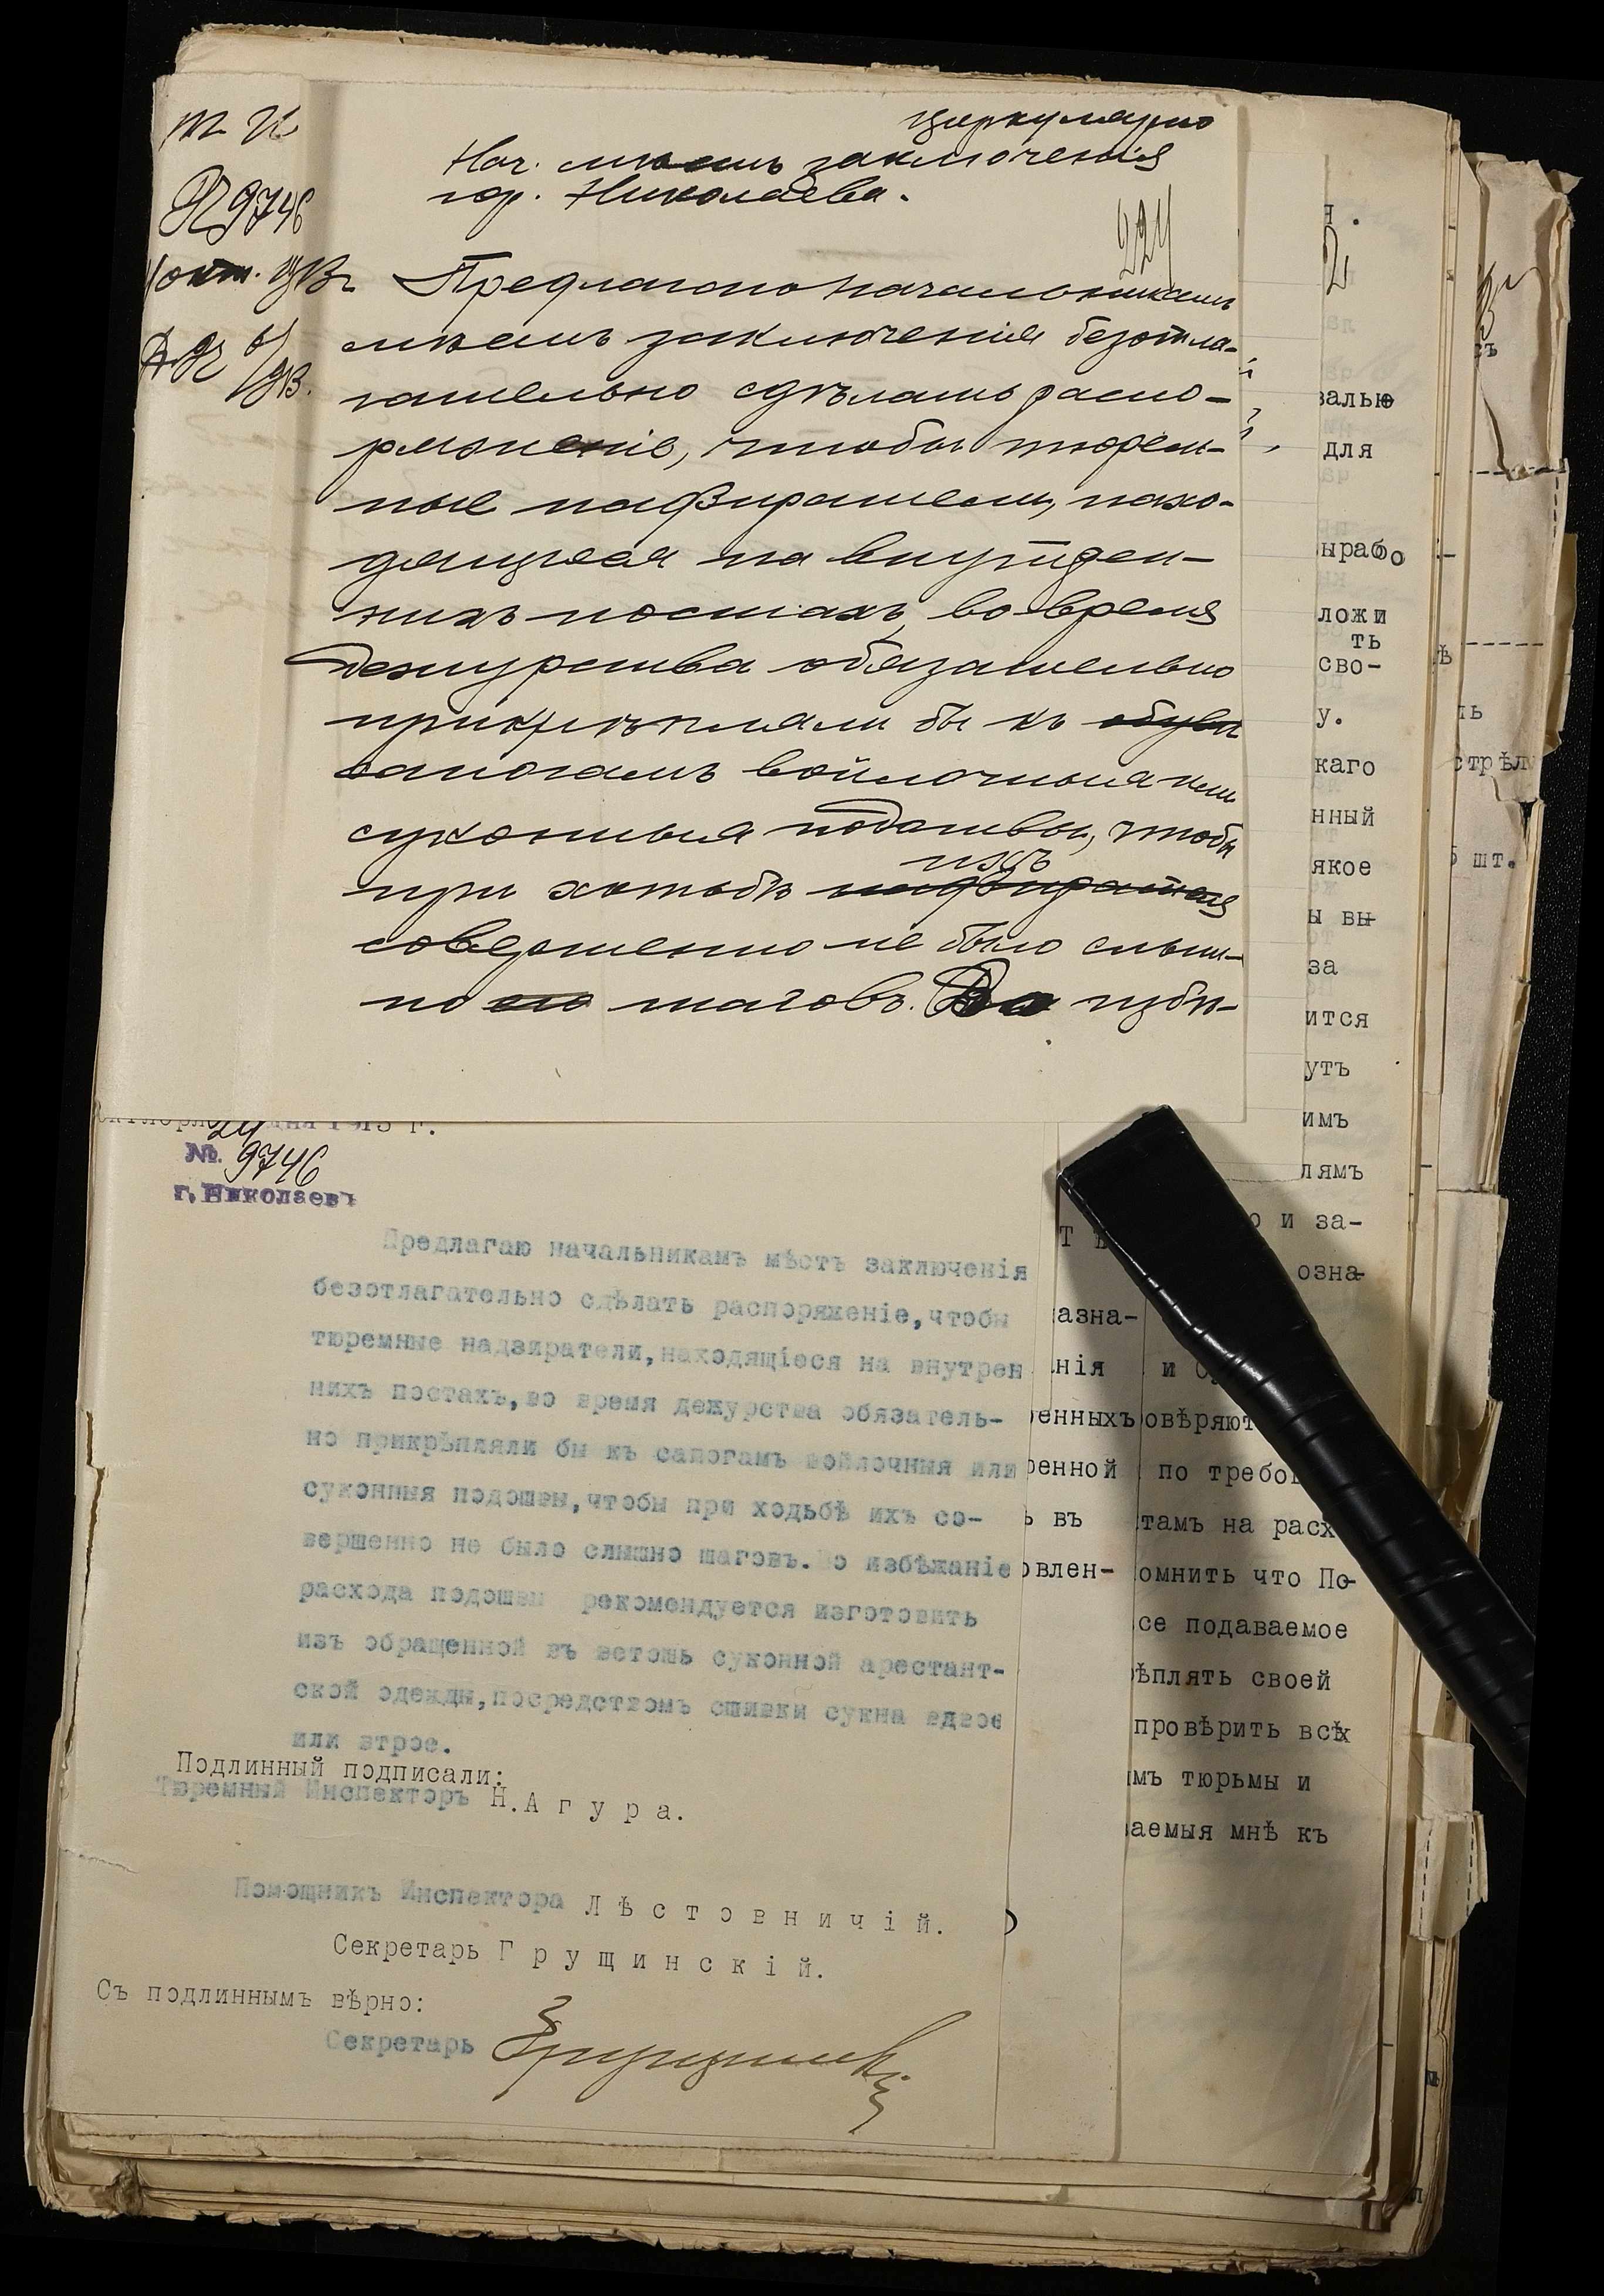 циркулярно
Нач. мѣстъ заключенія
гор. Николаева.
224
№ 9746
Предлагаю начальникамъ
мѣстъ заключенія безотла-
гательно сдѣлать распо-
ряженіе, чтобы тюрем-
ные надзиратели, нахо-
дящіеся на внутрен-
нихъ постахъ, во время
дежурства обязательно
прикрѣпляли бы къ обуви
сапогамъ войлочныя или
суконныя подошвы, чтобы
ихъ
при ходьбѣ надзирателя
совершенно не было слыш-
но его шаговъ. Во избѣ-
24 дня 1913 г.
№ 9746
г. Николаевъ
Предлагаю начальникамъ мѣстъ заключенія
безотлагательно сдѣлать распоряженіе,чтобы
тюремные надзиратели,находящіеся на внутрен
нихъ постахъ,во время дежурства обязатель-
но прикрѣпляли бы къ сапогамъ войлочныя или
суконныя подошвы,чтобы при ходьбѣ ихъ со-
вершенно не было слышно шаговъ.Во избѣжаніе
расхода подошвы рекомендуется изготовить
изъ обращенной въ ветошь суконной арестант-
ской одежды,посредствомъ сшивки сукна вдвое
или втрое.
Подлинный подписали:
Тюремный Инспекторъ Н.Агура.
Помощникъ Инспектора Лѣстовничій.
Секретарь Грущинскій.
Съ подлиннымъ вѣрно:
Секретарь Грущинскій
валью
для
ырабо
ложи
ть
сво-
у.
каго
нный
якое
ы вы-
за
ится
утъ
имъ
лямъ
о и за-
озна-
азна-
нія
енныхъ
ренной
ь въ
овлен-
овѣряют
по требо
тамъ на расх
омнить что По-
се подаваемое
ѣплять своей
провѣрить всѣх
мъ тюрьмы и
аемыя мнѣ къ
стрѣл
шт.